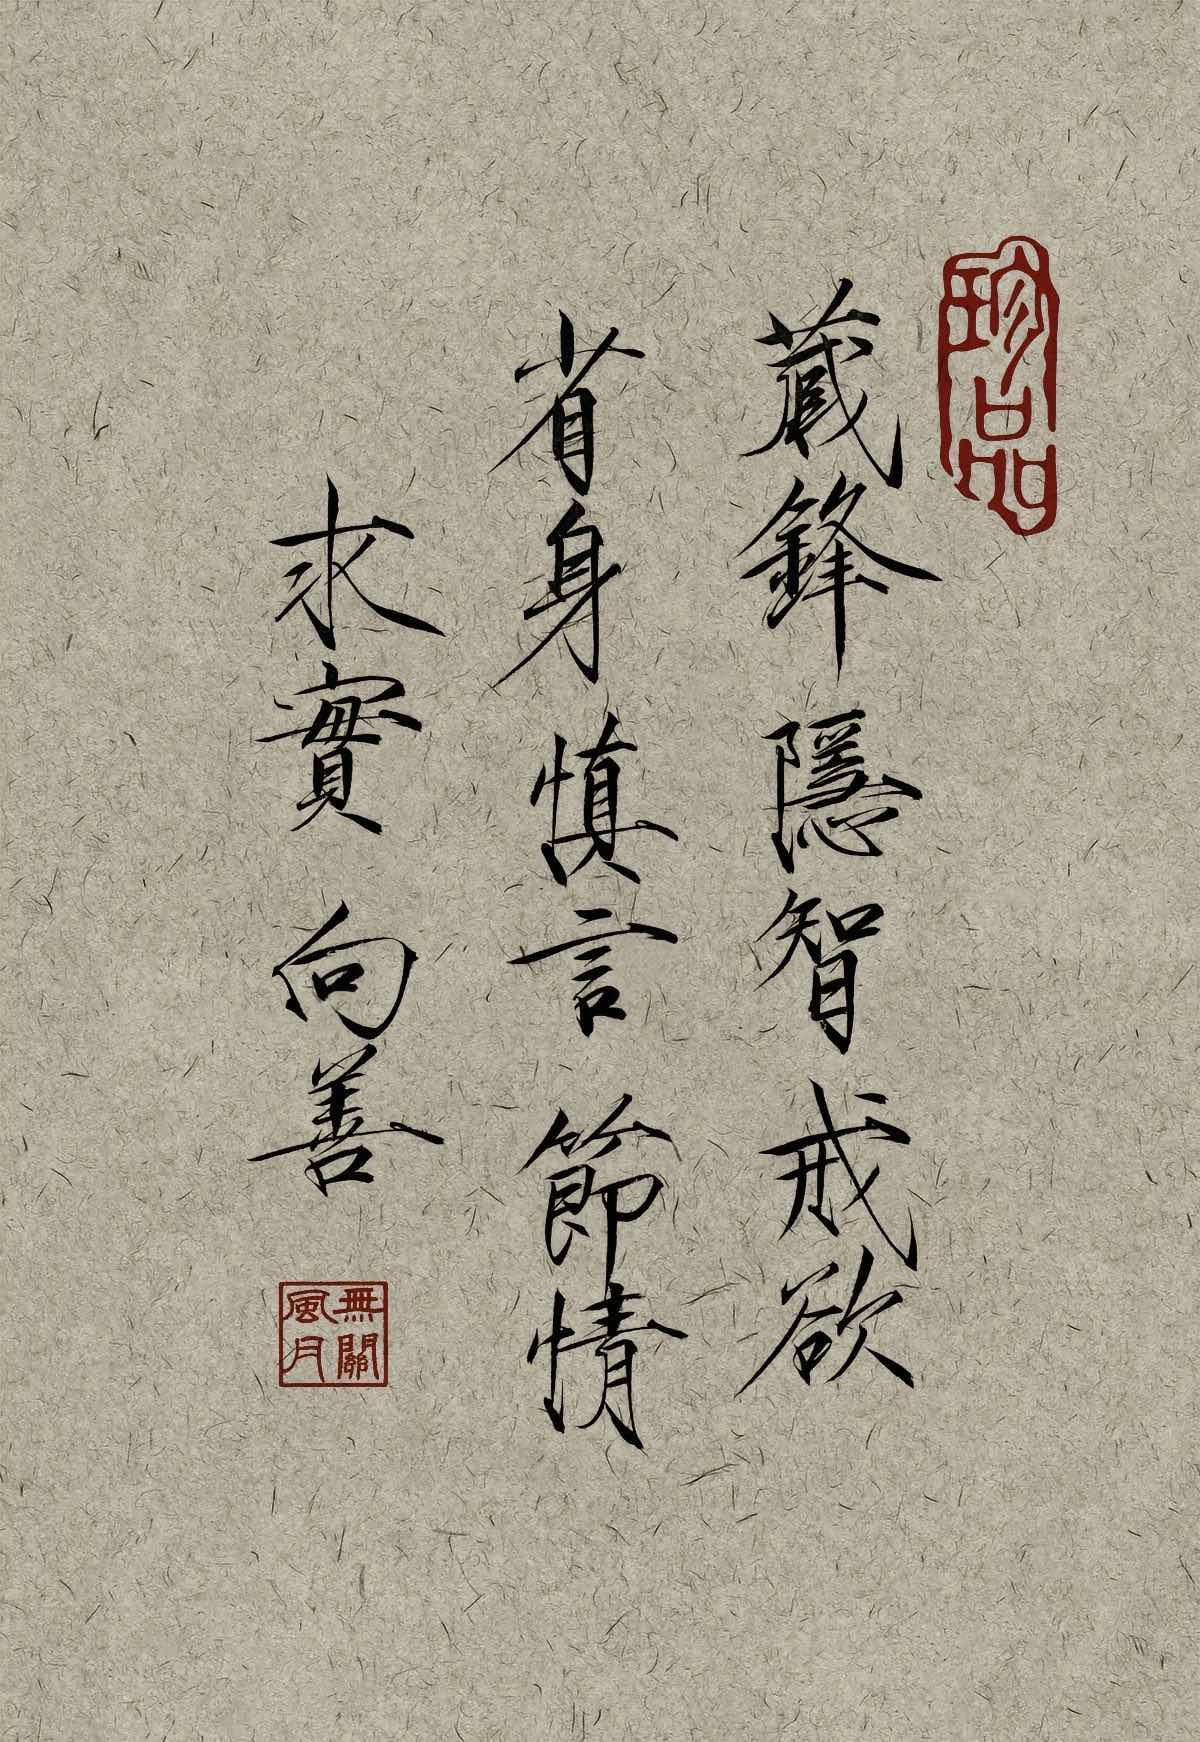 珍品
藏鋒 隱智 戒欲
省身 慎言 節情
求實 向善
無關
風月